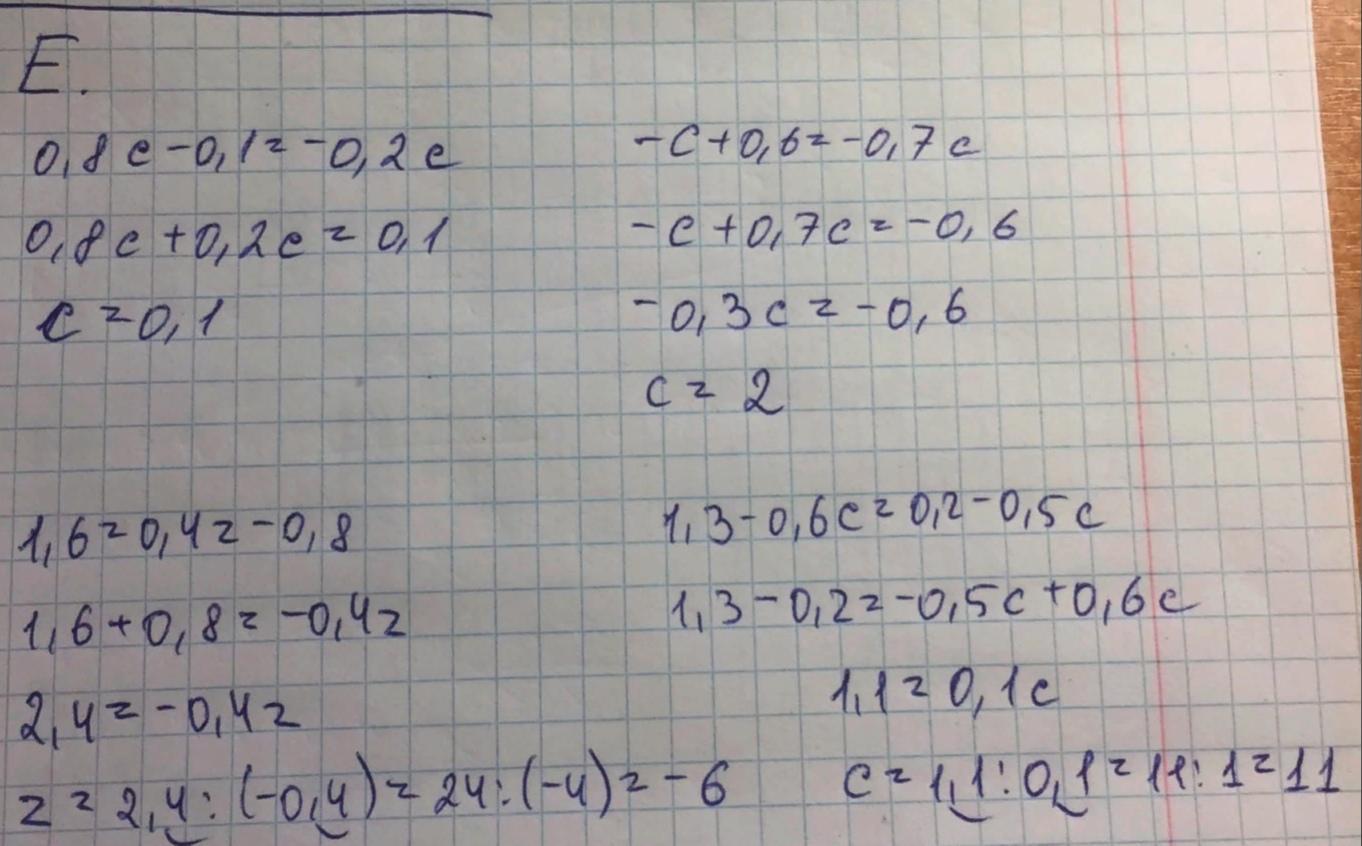 E.
0,8c-0,1=-0,2c
0,8c+0,2c=0,1
c=0,1
-c+0,6=-0,7c
-c+0,7c=-0,6
-0,3c=-0,6
c=2
1,6=0,4z-0,8
1,6+0,8=-0,4z
2,4=-0,4z
z=2,4:(-0,4)=24:(-4)=-6
1,3-0,6c=0,2-0,5c
1,3-0,2=-0,5c+0,6c
1,1=0,1c
c=1,1:0,1=11:1=11